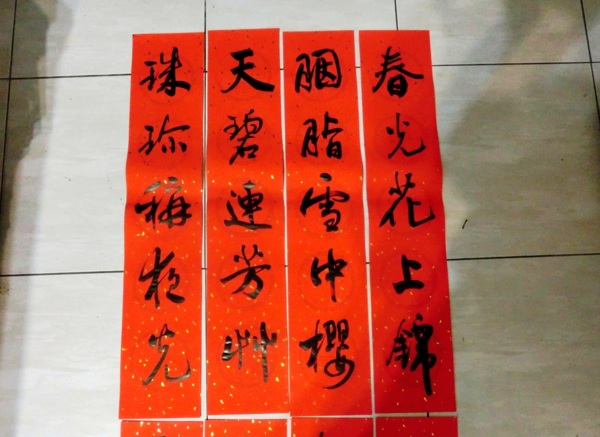 春光花上錦
胭脂雪中櫻
天碧連芳艸
珠珎稱夜光